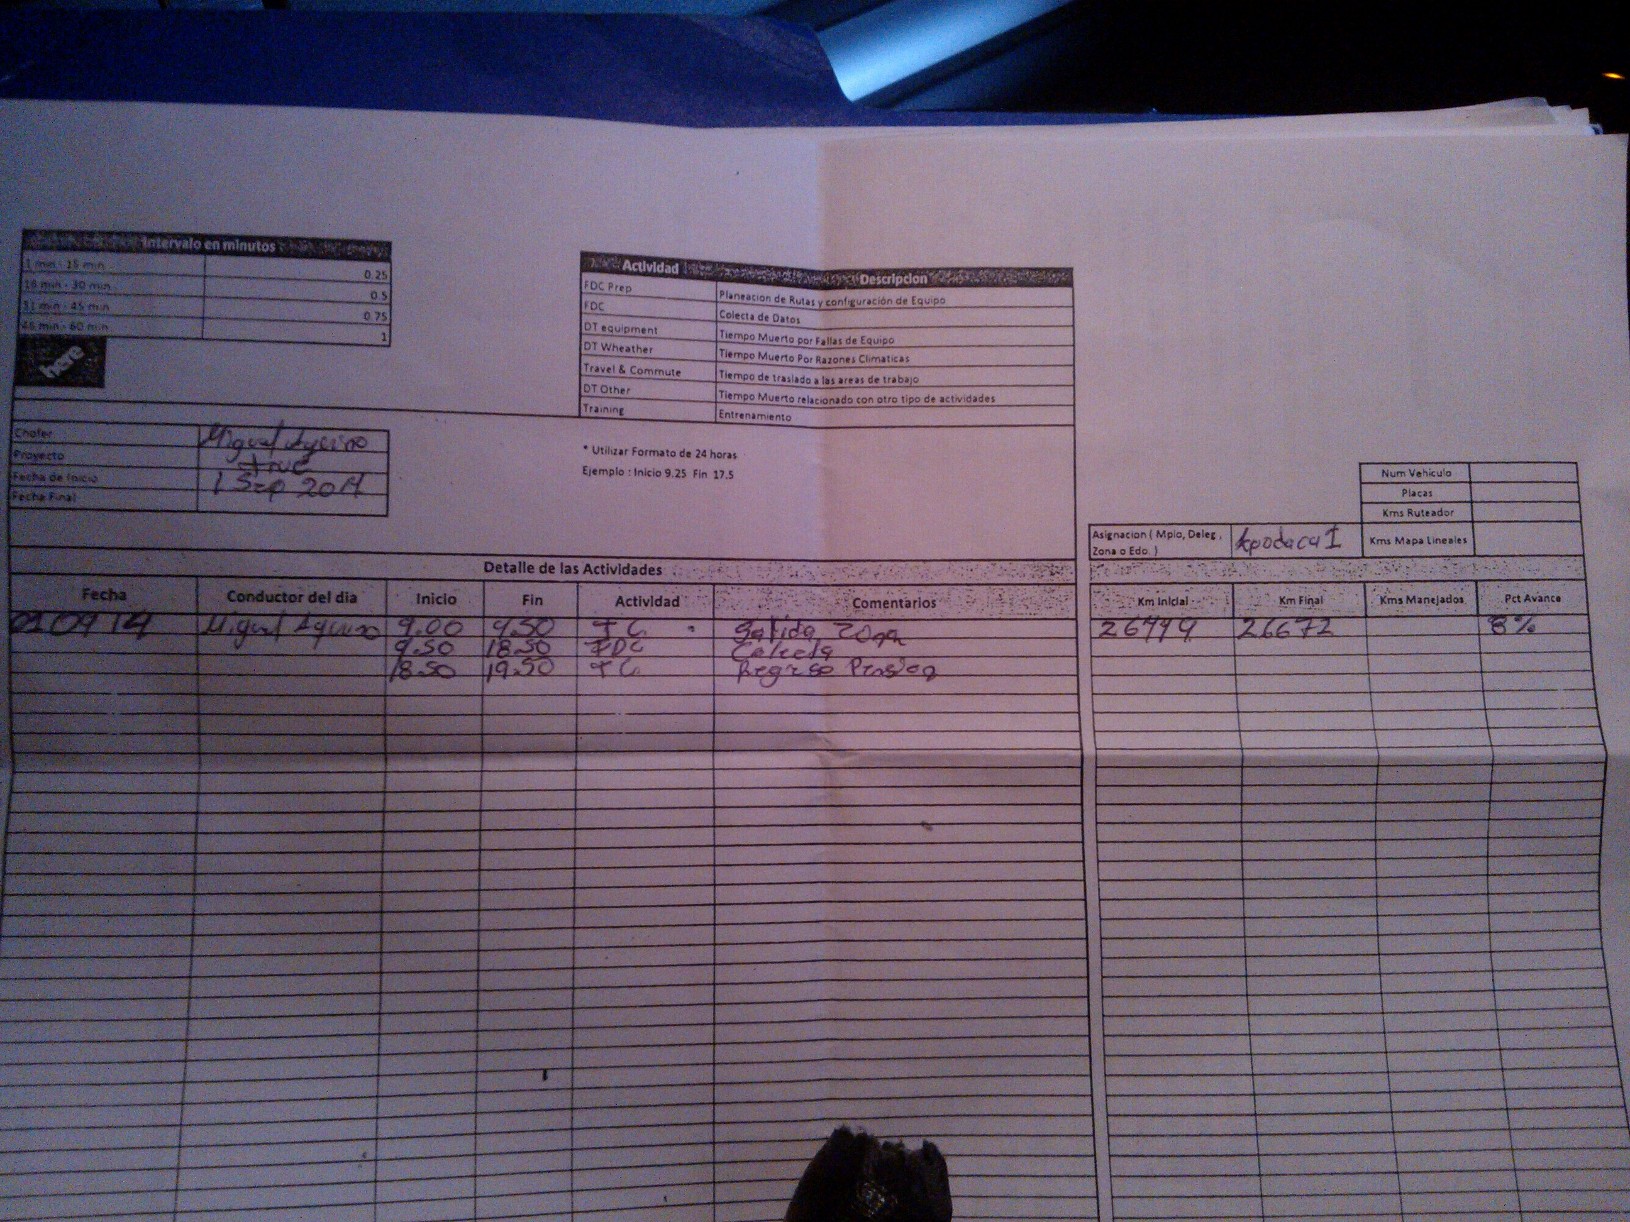 Intervalo en minutos
1 min - 15 min 0.25
16 min - 30 min 0.5
31 min - 45 min 0.75
46 min - 60 min 1
here
Actividad Descripcion
FDC Prep Planeacion de Rutas y configuración de Equipo
FDC Colecta de Datos
DT equipment Tiempo Muerto por Fallas de Equipo
DT Wheather Tiempo Muerto Por Razones Climaticas
Travel & Commute Tiempo de traslado a las areas de trabajo
DT Other Tiempo Muerto relacionado con otro tipo de actividades
Training Entrenamiento
* Utilizar Formato de 24 horas
Ejemplo : Inicio 9.25 Fin 17.5
Chofer Miguel Aquino
Proyecto
Fecha de Inicio 1 Sep 2014
Fecha Final
Num Vehiculo
Placas
Kms Ruteador
Kms Mapa Lineales
Asignacion ( Mpio, Deleg ,
Zona o Edo. ) Apodaca I
Detalle de las Actividades
Fecha Conductor del dia Inicio Fin Actividad Comentarios Km Inicial Km Final Kms Manejados Pct Avance
010914 Miguel Aquino 9.00 9.50 TC Salida Zona 26672 8%
9.50 18.50 FDC Colecta
18.50 19.50 TC Regreso Pension